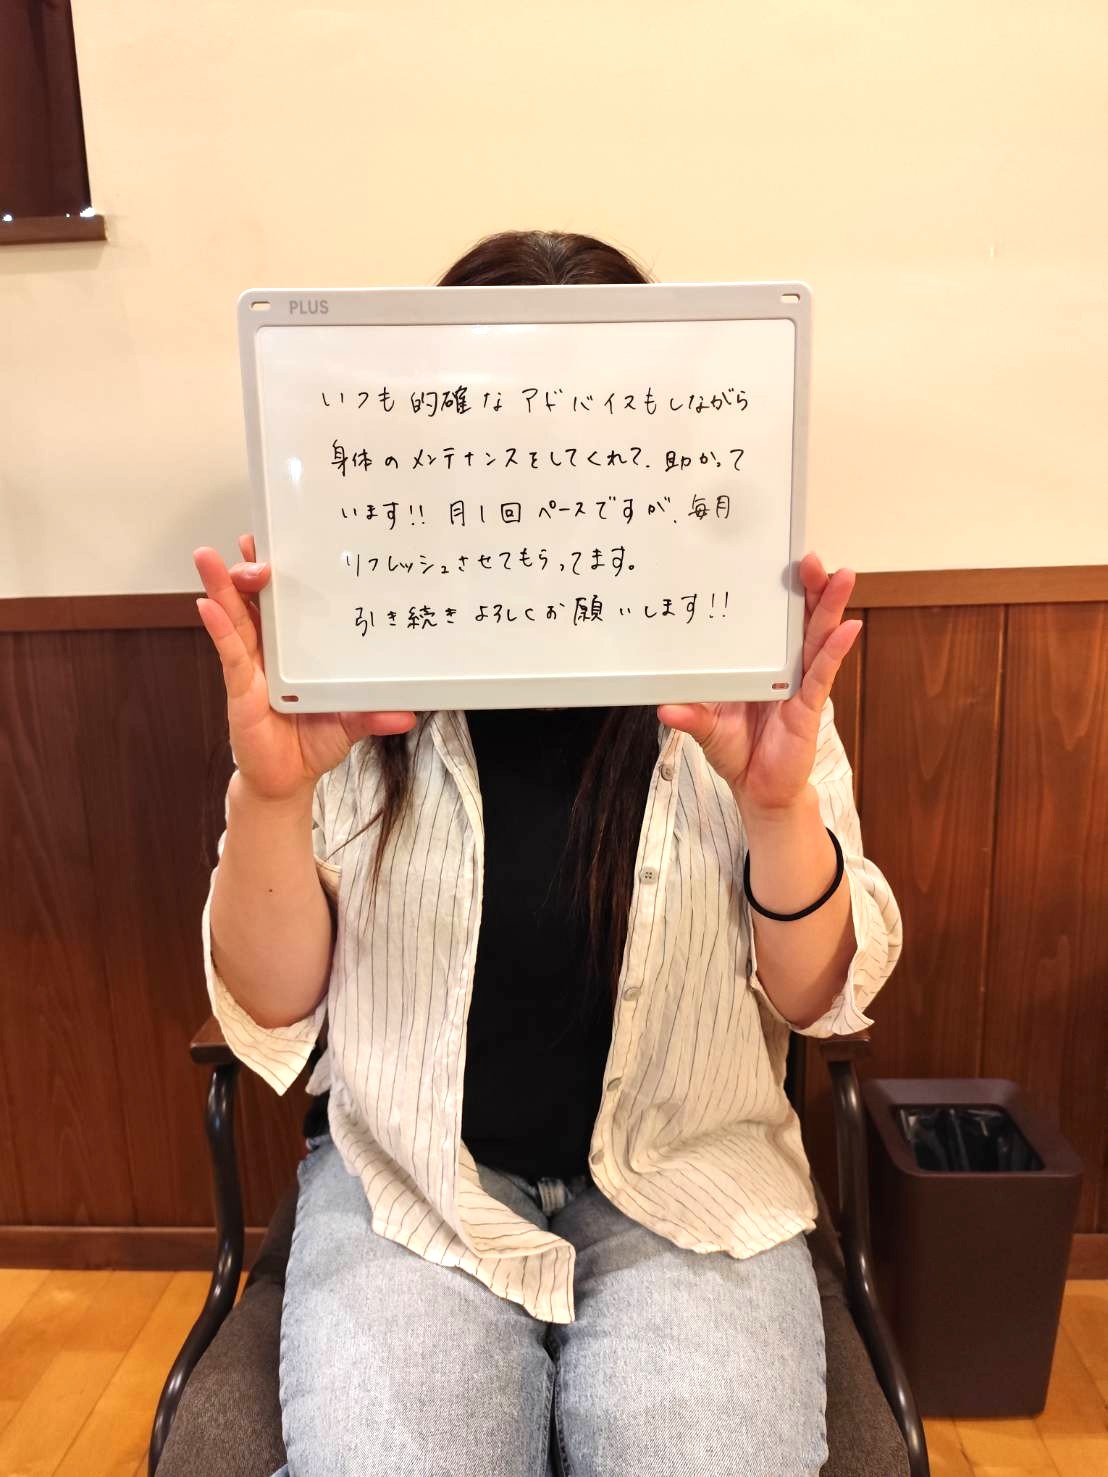 PLUS
いつも的確なアドバイスもしながら
身体のメンテナンスをしてくれて、助かって
います!! 月1回ペースですが、毎月
リフレッシュさせてもらってます。
引き続きよろしくお願いします!!